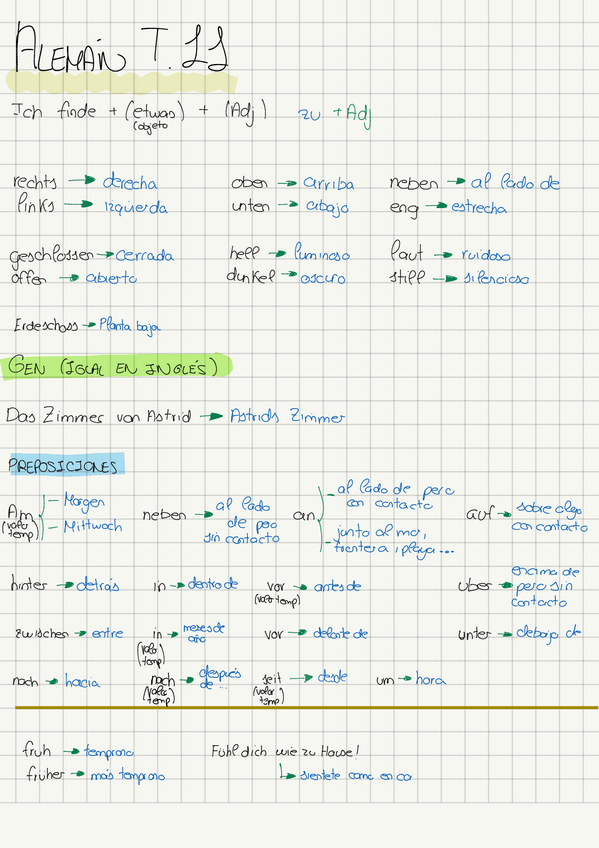 ALEMÁN T. 11
Ich finde + (etwas) + (Adj) zu + Adj
(objeto
rechts → derecha oben → arriba neben → al lado de
links → izquierda unten → abajo eng → estrecha
geschlossen → cerrada hell → luminoso laut → ruidoso
offen → abierto dunkel → oscuro still → silencioso
Erdeschoss → Planta baja
GEN (IGUAL EN INGLÉS)
Das Zimmer von Astrid → Astrids Zimmer
PREPOSICIONES
Am (valor temp) – Morgen – Mittwoch
neben → al lado de pero sin contacto
an – al lado de pero con contacto – junto al mar, frontera, playa...
auf → sobre algo con contacto
hinter → detrás in → dentro de vor (valor temp) → antes de über → encima de pero sin contacto
zwischen → entre in (valor temp) → meses de año vor → delante de unter → debajo de
nach → hacia nach (valor temp) → después de ... seit (valor temp) → desde um → hora
früh → temprano Fühl dich wie zu Hause!
früher → más temprano ↳ sientete como en ca